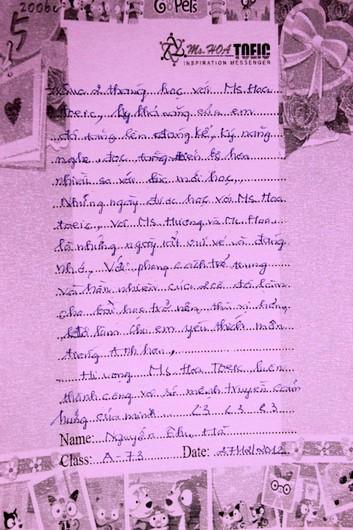 2006
5
Pets
Ms. HOA TOEIC
INSPIRATION MESSENGER
2 tháng học với Ms Hoa
Toeic, kỹ năng của em
đã tăng lên đáng kể, kỹ năng
nghe đọc tăng tiến bộ hơn
nhiều so với lúc mới học,
Những ngày được học với Ms Hoa
toeic, với Ms Hương và Ms Hoa
là những ngày rất vui vẻ và đáng
nhớ, Với phong cách trẻ trung
và hồn nhiên của 2 cô đã làm
cho bài học trở nên thú vị hơn,
đã làm cho em yêu thích môn
tiếng Anh hơn,
Hi vọng Ms Hoa Toeic luôn
thành công với sứ mệnh truyền cảm
hứng của mình <3 <3 <3
Name: Nguyễn Thu Hà
Class: A-73 Date: 27/12/2012